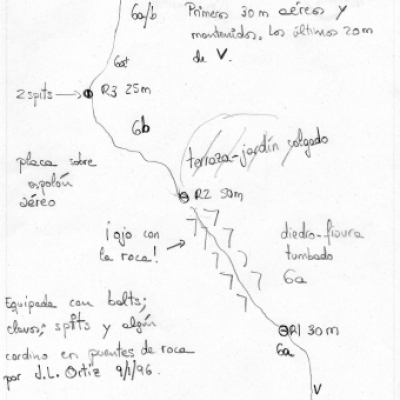 6a/b
Primeros 30 m aéreos y
mantenidos. Los últimos 20m
de V.
6a+
2 spits → R3 25m
6b
terraza-jardín colgado
placa sobre
espolón
aéreo
R2 50m
¡ojo con
la roca!
diedro-fisura
tumbado
6a
Equipada con bolts;
clavos; spits y algún
cordino en puentes de roca
por J.L. Ortiz 9/1/96.
R1 30m
6a
V